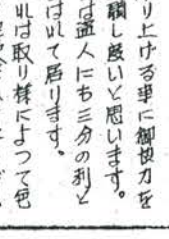 り上げる事に御協力を
願し度いと思います。
は盗人にも三分の利と
はれて居ります。
れは取り様によつて色